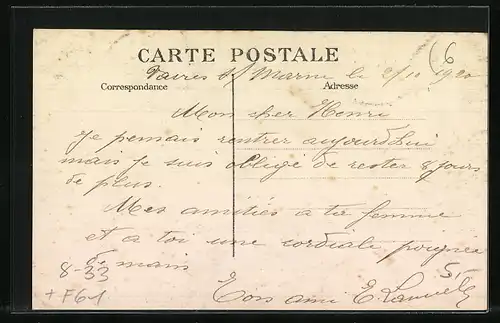 CARTE POSTALE
Vaires s/ Marne le 2/10 1920
Correspondance Adresse
Mon cher Henri
Je pensais rentrer aujourd'hui
mais je suis obligé de rester 8 jours
de plus.
Mes amitiés a ta femme
et a toi une cordiale poignée
de main
Ton ami E.
8-33
+ F61
6
5,-